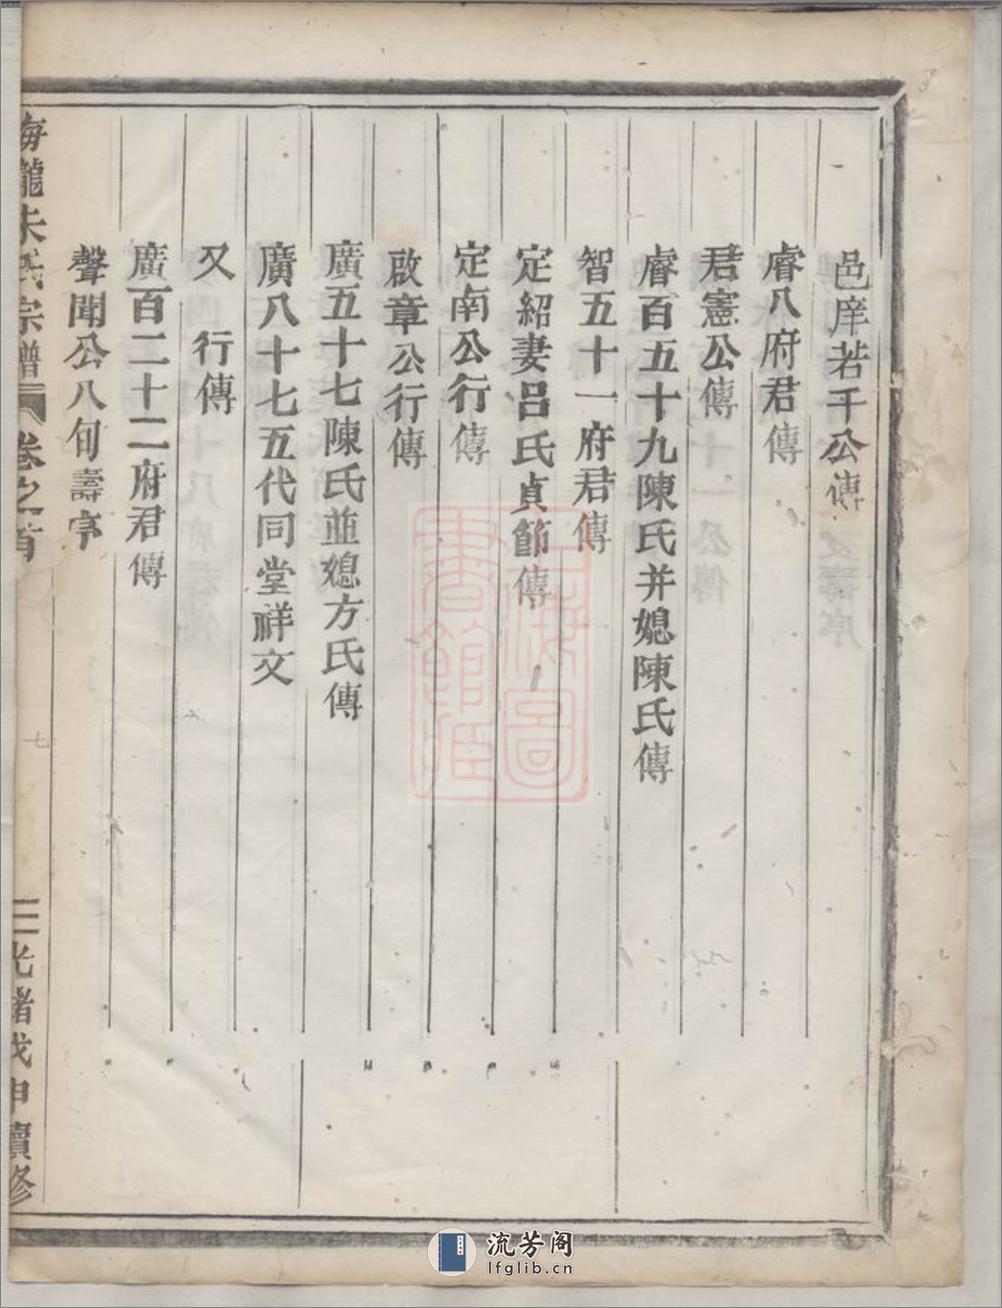 邑庠若千公傳
睿八府君傳
君憲公傳
睿百五十九陳氏并媳陳氏傳
智五十一府君傳
定紹妻呂氏貞節傳
定南公行傳
啟章公行傳
廣五十七陳氏並媳方氏傳
廣八十七五代同堂祥文
又 行傳
廣百二十二府君傳
聲聞公八旬壽序
海龍朱氏宗譜 卷之首 二 光緒戊申續修
上海圖書館藏
流芳阁
lfglib.cn